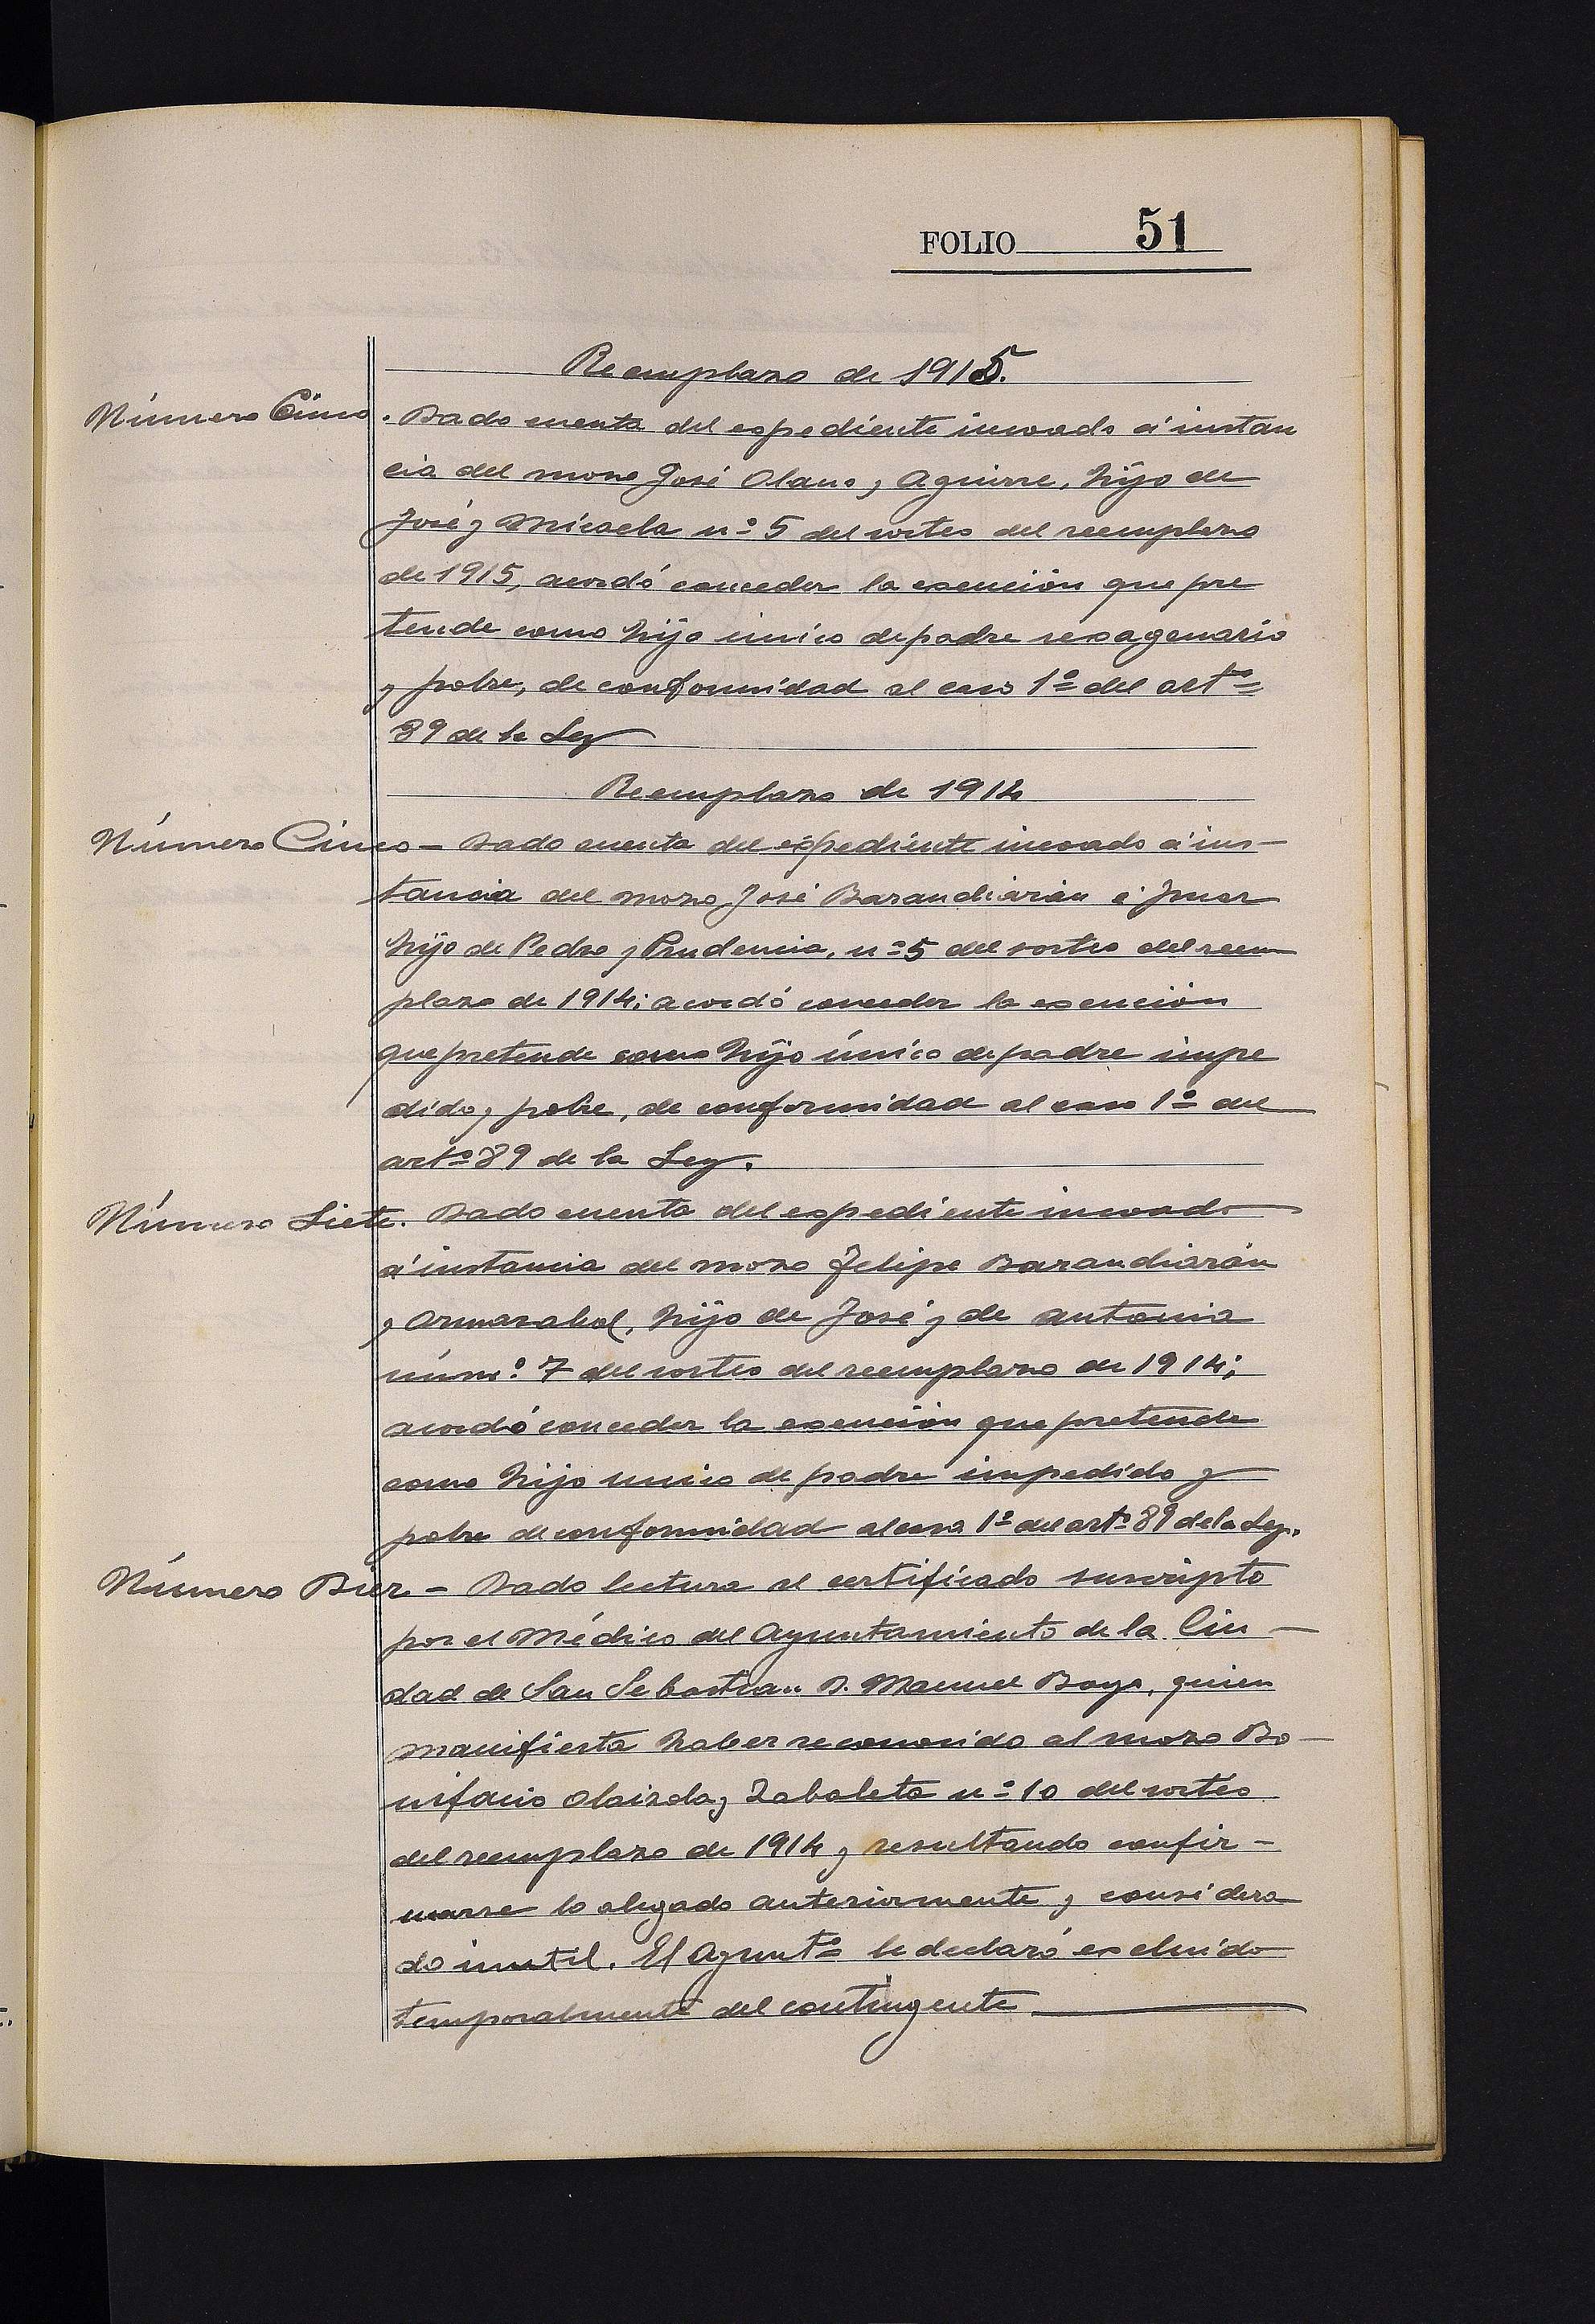 FOLIO 51
Reemplazo de 1915.
Número Cinco. Dado cuenta del expediente incoado á instan
cia del mozo José Olano y Aguirre, hijo de
José y Micaela nº 5 del sorteo del reemplazo
de 1915, acordó conceder la exención que pre
tende como hijo único de padre sexagenario
y pobre, de conformidad al caso 1º del artº
89 de la Ley
Reemplazo de 1914
Número Cinco - Dado cuenta del expediente incoado á ins-
tancia del mozo José Barandiarán é
hijo de Pedro y Prudencia, nº 5 del sorteo del reem
plazo de 1914; acordó conceder la exención
que pretende como hijo único de padre impe
dido y pobre, de conformidad al caso 1º del
artº 89 de la Ley.
Número Siete. Dado cuenta del expediente incoado
á instancia del mozo Felipe Barandiarán
y Ormazabal, hijo de José y de Antonia
núm.º 7 del sorteo del reemplazo de 1914;
acordó conceder la exención que pretende
como hijo unico de padre impedido y
pobre de conformidad al caso 1º del artº 89 de la Ley.
Número Diez - Dado lectura al certificado suscripto
por el Médico del Ayuntamiento de la Ciu-
dad de San Sebastian D. Manuel Bago, quien
manifiesta haber reconocido al mozo Bo-
nifacio Olaizola y Zabaleta nº 10 del sorteo
del reemplazo de 1914 y resultando confir-
marse lo alegado anteriormente y considera
do inutil. El Ayuntº le declaró excluido
temporalmente del contingente